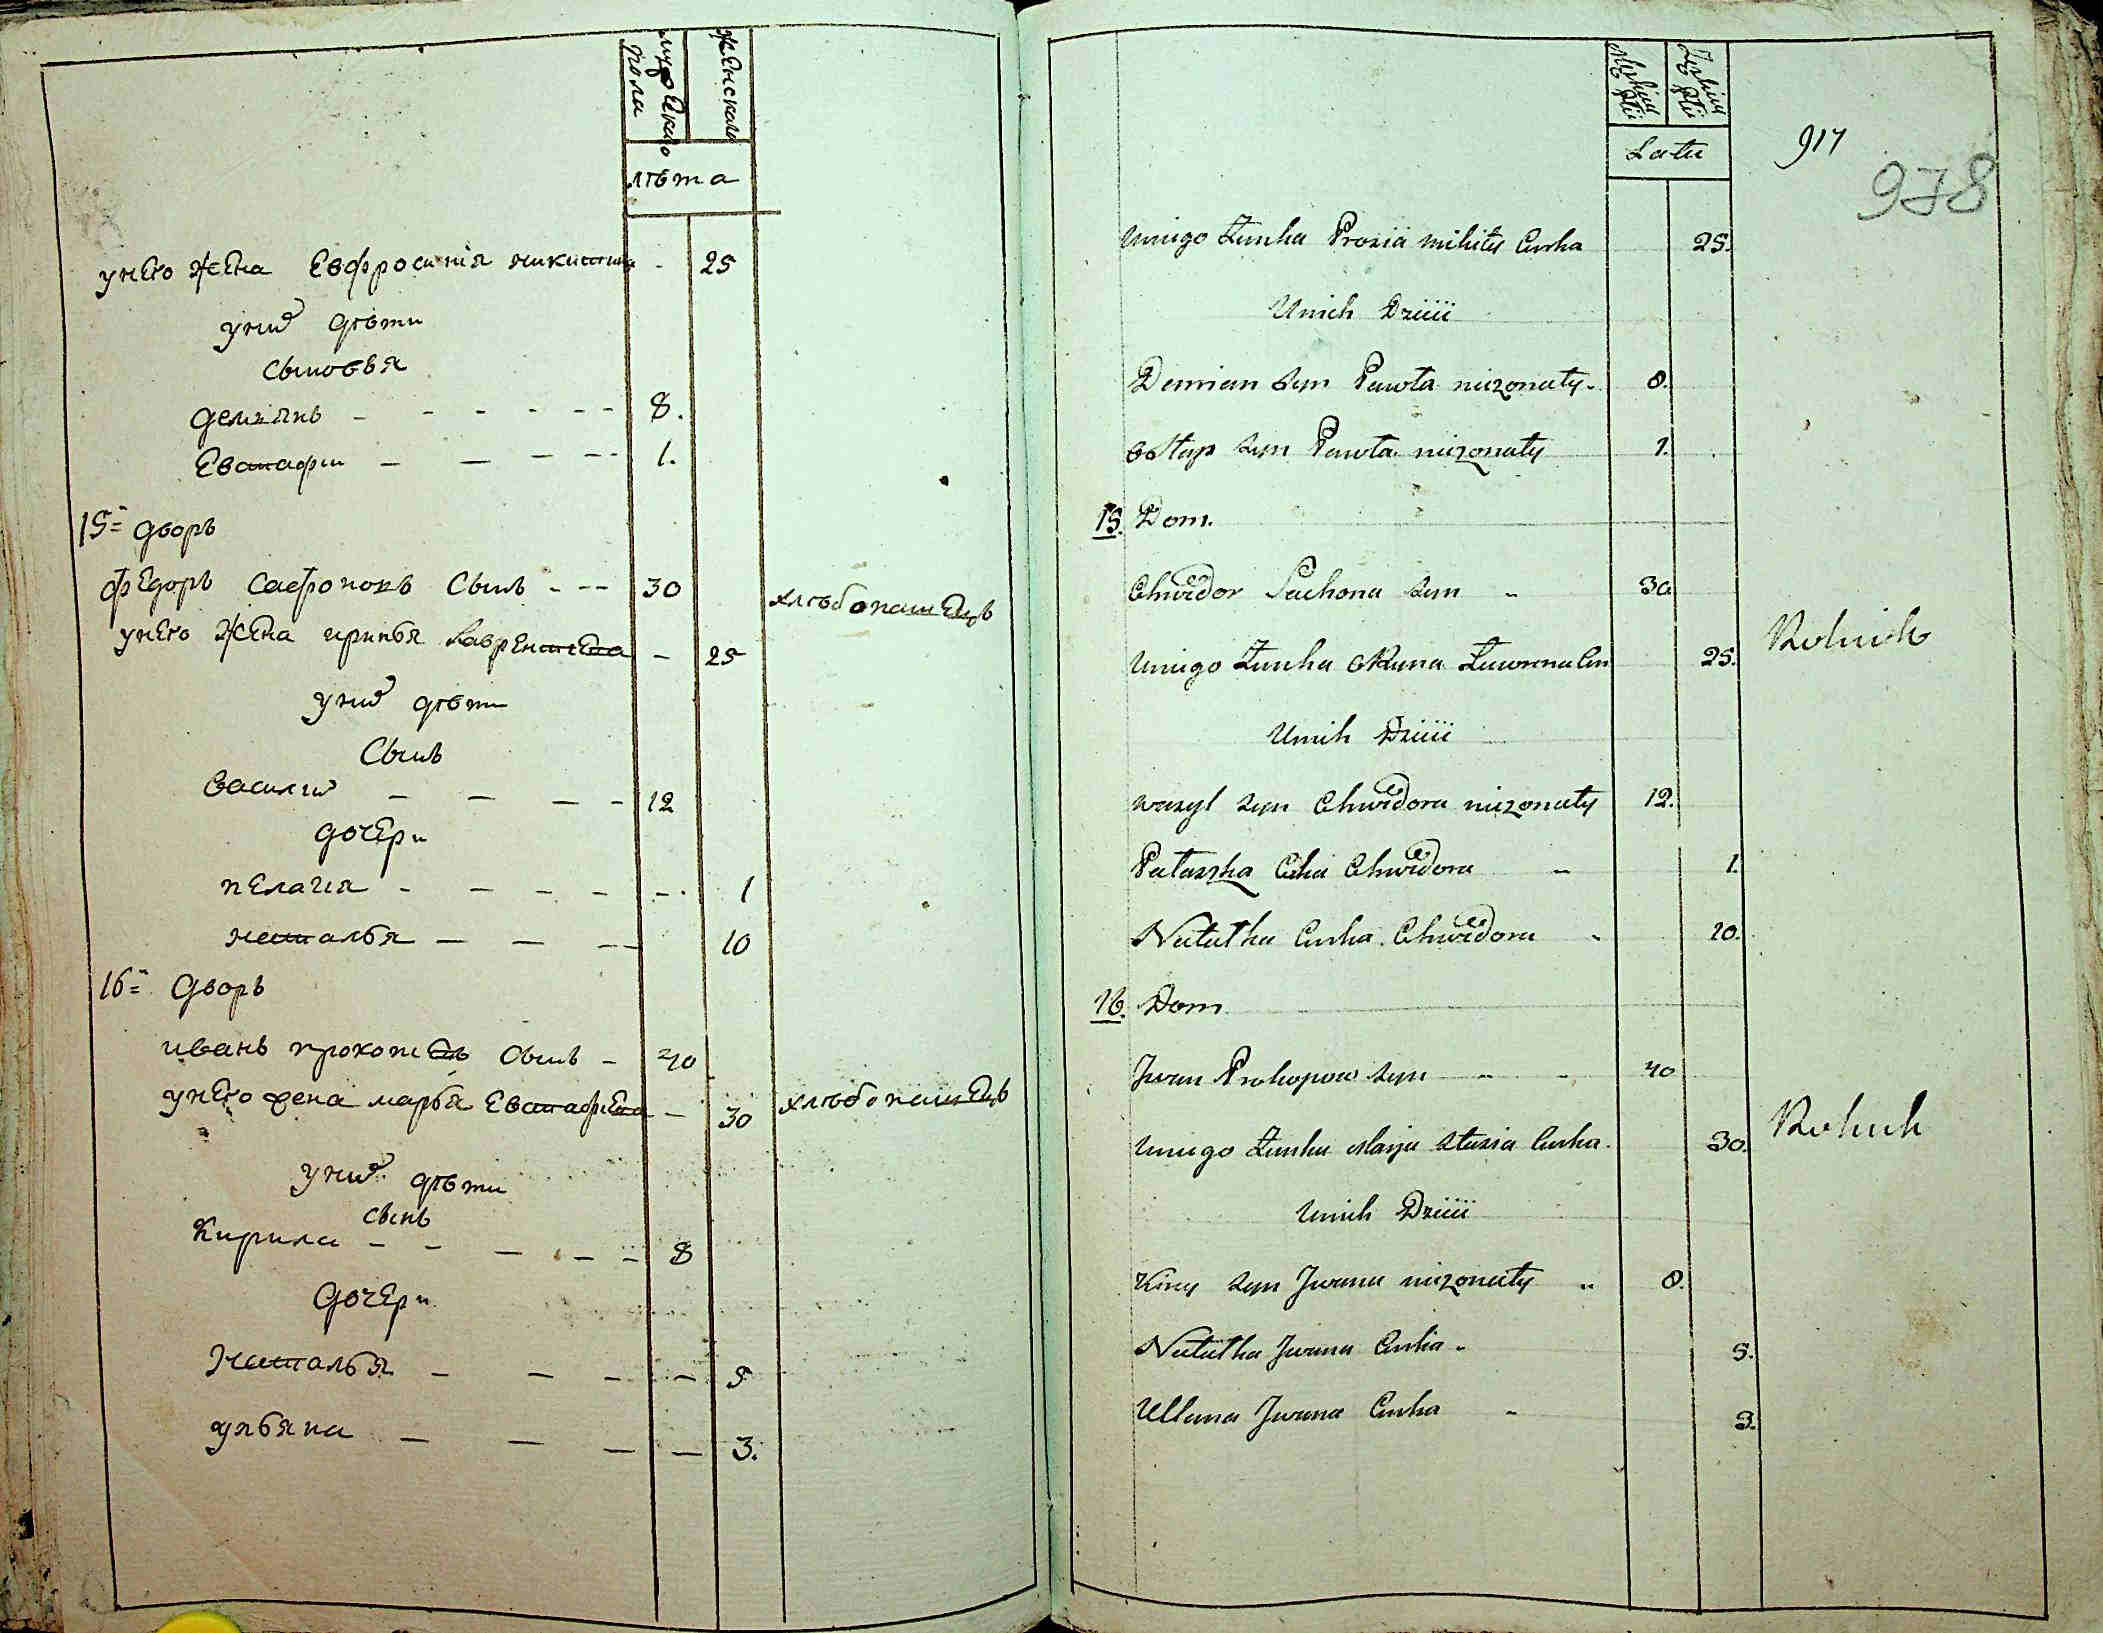 мужескаго пола
женскаго
лѣта
унего жена Евфросинїя никитина - 25
униⷯ дѣти
сыновья
демьянъ - - - - - - 8.
Евстафїи - - - - - 1.
15= дворъ
федоръ сафроновъ сынъ - - - 30
хлѣбопашецъ
унего жена иринья лаврентьева - 25
униⷯ дѣти
сынъ
василиⷨ - - - - 12
дочери
пелагия - - - - - 1
наталья - - - - 10
16= дворъ
иванъ прокопьевъ сынъ - 40
унего жена марья Евстафьева - 30
хлѣбопашецъ
униⷯ дѣти
сынъ
Кирила - - - - - 8
дочери
Наталья - - - - 5
ульяна - - - - 3.
Męskiey Płci
Żeńskiey Płci
Lata
917
978
Uniego Żonka Prosia mikity Curka 25.
Unich Dzieci
Demian syn Pawła nieżonaty - 8.
Ostap syn Pawła nieżonaty 1.
15. Dom.
Chwedor Sachona syn " 30
Uniego Żonka Okuna Ławrena Cur 25.
Rolnik
Unich Dzieci
wasyl syn Chwedora nieżonaty 12.
Pałaszka Cũka Chwedora " 1.
Natałka Curka Chwedora " 10.
16. Dom
Jwan Prokopow syn " " 40
Uniego Żonka Marja Stasia Curka. 30.
Rolnik
Unich Dzieci
Kiryً syn Jwana nieżonaty " 8.
Natałka Jwana Curka " 5.
Ullana Jwana Curka " 3.